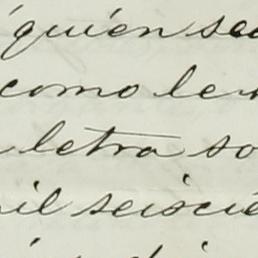 quien sea
como le
letra so
mil seiscie